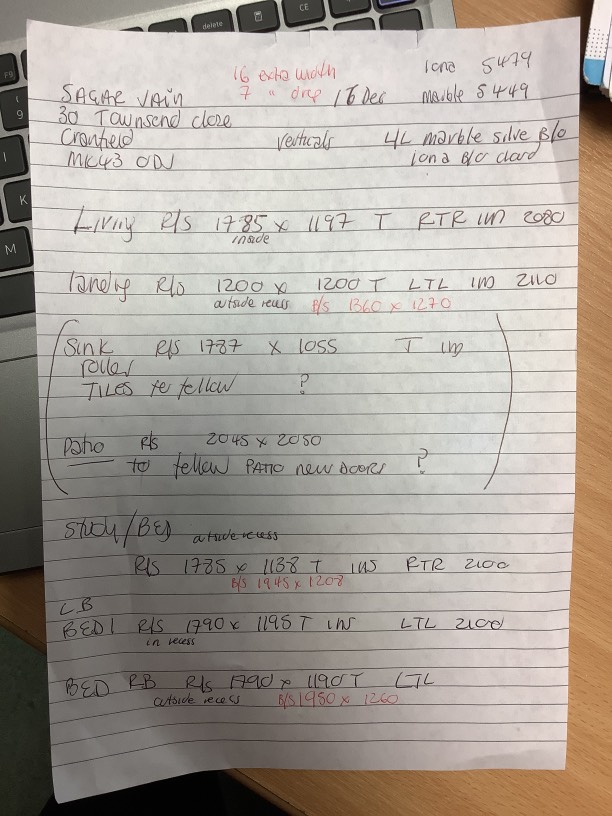 16 extra width Iona 5479
SAGAR VAIN 7 " drop 16 Dec Marble 5449
30 Townsend close
Cranfield Verticals 4L marble silve B/O
MK43 0DJ iona B/O
Living R/S 1785 x 1197 T RTR IM 2080
inside
landig R/S 1200 x 1200 T LTL IM 2110
outside recess B/S 1360 x 1270
Sink R/S 1787 x 1055 T IM
roller
TILES to fellow ?
Patio R/S 2045 x 2050
to fellow PATIO new DOORS ?
Study/BED outside recess
R/S 1785 x 1138 T INS RTR 2100
B/S 1945 x 1208
LB
BED1 R/S 1790 x 1195 T INS LTL 2100
in recess
BED RB R/S 1790 x 1190 T LTL
outside recess B/S 1950 x 1260
delete
CE
F9
9
I
K
M